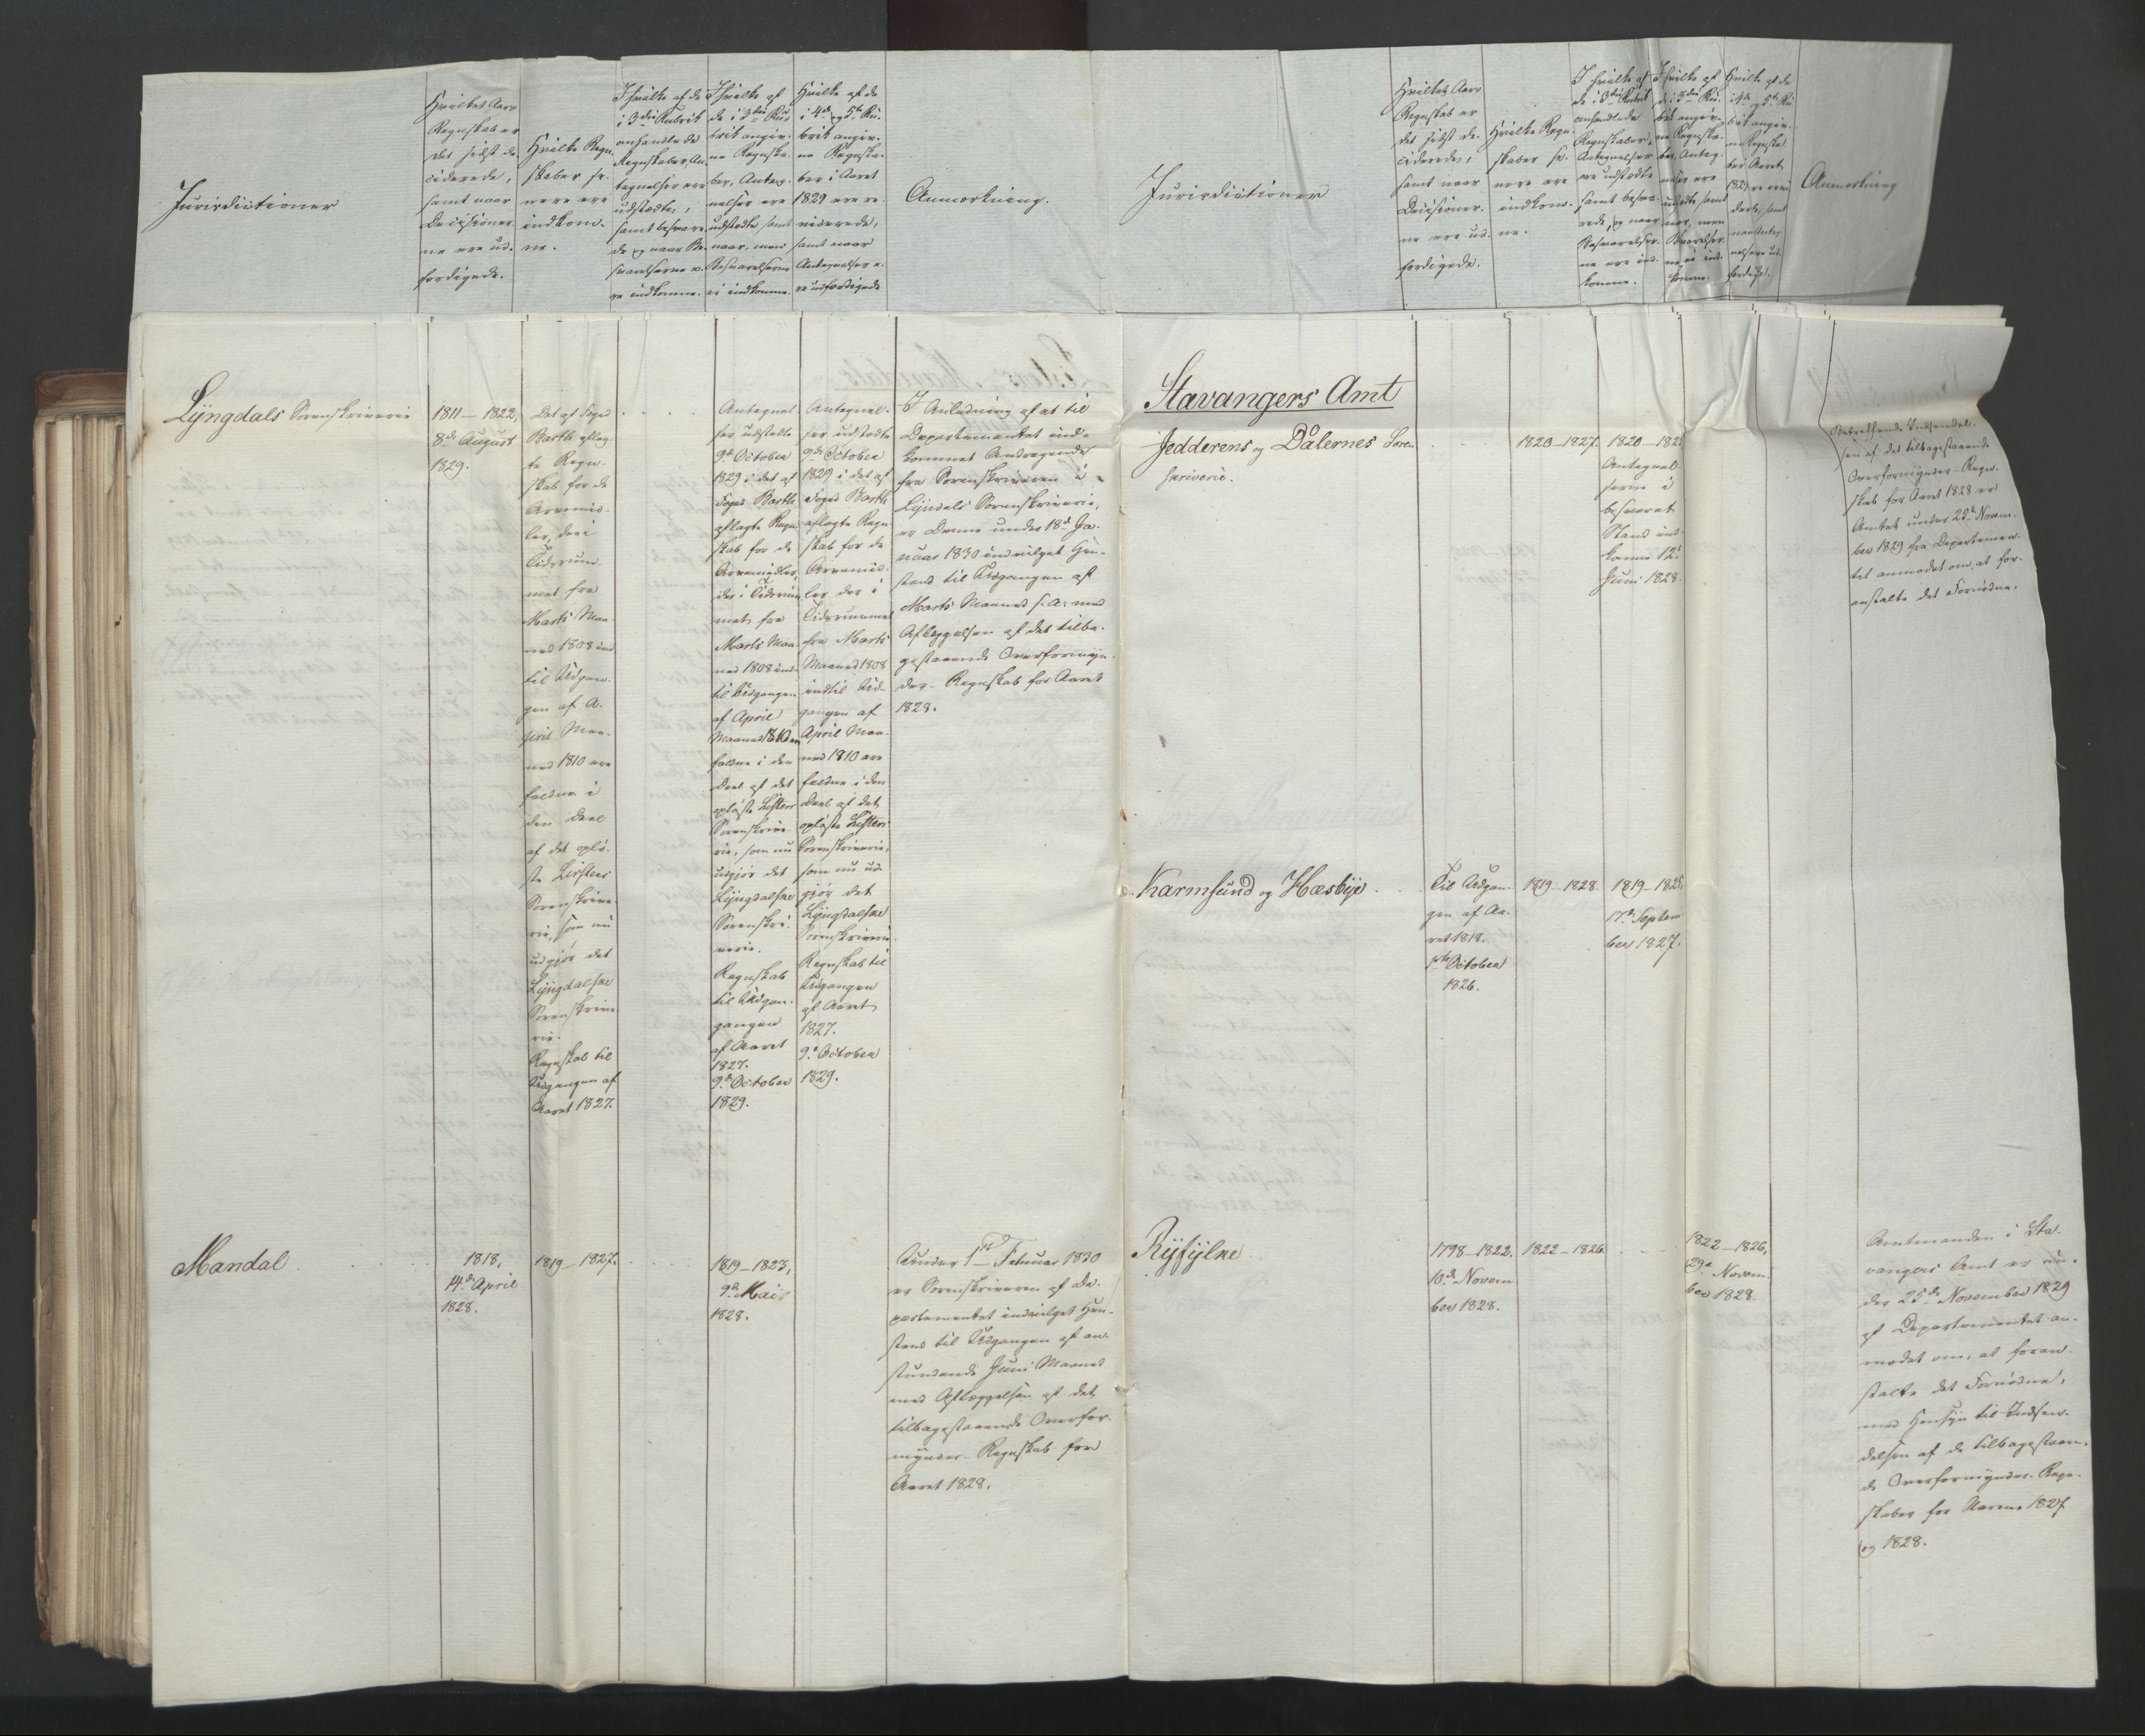 Jurisdictioner
Hvilket Aars
Regnskab er
det sidst de-
ciderede,
samt naar
Decisioner-
ne ere ud-
færdigede.
Hvilke Regn-
skaber se-
nere ere
indkom-
ne.
I hvilke af de
i 3die Rubrik
omhandlede
Regnskaber, An-
tegnelser ere
udstædte,
samt besvare-
de og naar Be-
svarelserne e-
re indkomne.
I hvilke af
de i 3die Ru-
brik angiv-
ne Regnska-
ber, Anteg-
nelser ere
udstædte, samt
naar, men
Besvarelserne
ei indkomne.
Hvilke af de
i 4de og 5te Ru-
brik angiv-
ne Regnska-
ber i Aaret
1829 ere re-
viderede,
samt naar
Antegnelser e-
re udfærdigede
Anmærkning.
Lyngdals Sorenskriverie
1811–1822,
8de August
1829.
Det af Foged
Barth aflag-
te Regn-
skab for de
Arvemid-
ler, der i
Tidsrum-
met fra
Marts Maa-
ned 1808 ind-
til Udgan-
gen af A-
pril Maa-
ned 1810 ere
faldne i
den Deel
af det oplø-
ste Listers
Sorenskrive-
rie, som nu
udgjør det
Lyngdalske
Sorenskrive-
rie.
Regnskab til
Udgangen af
Aaret 1827.
Antegnel-
ser udstædte
9de October
1829 i det af
Foged Barth
aflagte Regn-
skab for de
Arvemidler,
der i Tidsrum-
met fra
Marts Maa-
ned 1808 ind-
til Udgangen
af April
Maaned 1810 ere
faldne i den
Deel af det
opløste Listers
Sorenskrive-
rie, som nu
udgjør det
Lyngdalske
Sorenskri-
verie.
Regnskab
til Udgan-
gangen
af Aaret
1827.
9de October
1829.
Antegnel-
ser udstædte
9de October
1829 i det af
Foged Barth
aflagte Regn-
skab for de
Arvemid-
ler der i
Tidsrummet
fra Marts
Maaned 1808
indtil Ud-
gangen af
April Maa-
ned 1810 ere
faldne i den
Deel af det
opløste Listers
Sorenskriverie,
som nu ud-
gjør det
Lyngdalske
Sorenskriverie.
Regnskab til
Udgangen
af Aaret
1827.
9de October
1829.
I Anledning af et til
Departementet ind-
kommet Andragende
fra Sorenskriveren i
Lyngdals Sorenskriverie,
er Denne under 18de Ja-
nuar 1830 indvilget Hen-
stand til Udgangen af
Marts Maaned s. A. med
Aflæggelsen af det tilba-
gestaaende Overformyn-
der-Regnskab for Aaret
1828.
Mandal
1818,
14de April
1828.
1819–1827.
1819–1823,
9de Mai
1828.
Under 1ste Februar 1830
er Sorenskriveren af De-
partementet indvilget Hen-
stand til Udgangen af an-
stundende Juni Maaned
med Aflæggelsen af det
tilbagestaaende Overfor-
mynder-Regnskab for
Aaret 1828.
Jurisdictioner
Hvilket Aars
Regnskab er
det sidst de-
ciderede,
samt naar
Decisioner-
ne ere ud-
færdigede.
Hvilke Regn-
skaber se-
nere ere
indkom-
ne.
I hvilke af
de i 3die Rubrik
omhandlede
Regnskaber,
Antegnelser
ere udstædte
samt besva-
rede, og naar
Besvarelser-
ne ere ind-
komne.
I hvilke af
de i 3die Ru-
brik angiv-
ne Regnska-
ber, Anteg-
nelser ere
udstædte, samt
naar, men
Besvarelser-
ne ei ind-
komne.
Hvilke af de
i 4de og 5te Ru-
brik angiv-
ne Regnska-
ber i Aaret
1829 ere revi-
derede, samt
naar Anteg-
nelser ere ud-
færdige.
Anmærkning
Stavangers Amt
Jedderens og Dalernes Soren-
skriverie.
1820–1827.
1820–182
Antegnel-
serne i
besvaret
Stand ind-
komne 12te
Juni 1828.
Betræffende Indsendel-
sen af det tilbagestaaende
Overformynder-Regn-
skab for Aaret 1828 er
Amtet under 25de Novem-
ber 1829 fra Departemen-
tet anmodet om, at for-
anstalte det Fornødne.
Karmsund og Hæsbye
Til Udgan-
gen af Aa-
ret 1818.
October
1826.
1819–1828.
1819–1825,
17de Septem-
ber 1827.
Ryfylke
1798–1822.
10de Novem-
ber 1828.
1822–1826.
1822–1826,
29de Novem-
ber 1828
Amtmanden i Sta-
vangers Amt er un-
der 25de November 1829
af Departementet an-
modet om, at foran-
stalte det Fornødne,
med Hensyn til Indsen-
delsen af de tilbagestaaen-
de Overformynder-Regn-
skaber for Aarene 1827
og 1828.